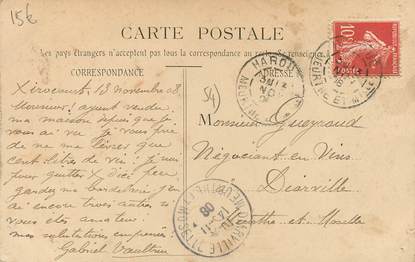 15€
CARTE POSTALE
Les pays étrangers n'acceptent pas tous la correspondance au recto, se renseigner
CORRESPONDANCE
ADRESSE
54
Xirocourt 13 novembre 08
Monsieur ! ayant vendu
ma maison depuis que je
vous ai vu je vous prie
de ne me livrer que
cent litres de vin : je suis
pour quitter X dici peu
gardez vos bordelais j'en
ai encore trois autres si
vous etes amateur :
mes salutations empressées :
Gabriel Vaultrin
Monsieur Gueyraud
Négociant en Vins
Diarville
Meurthe et Moselle
HAROUÉ
DIARVILLE
MEURTHE ET MOSELLE
08
10
POSTES